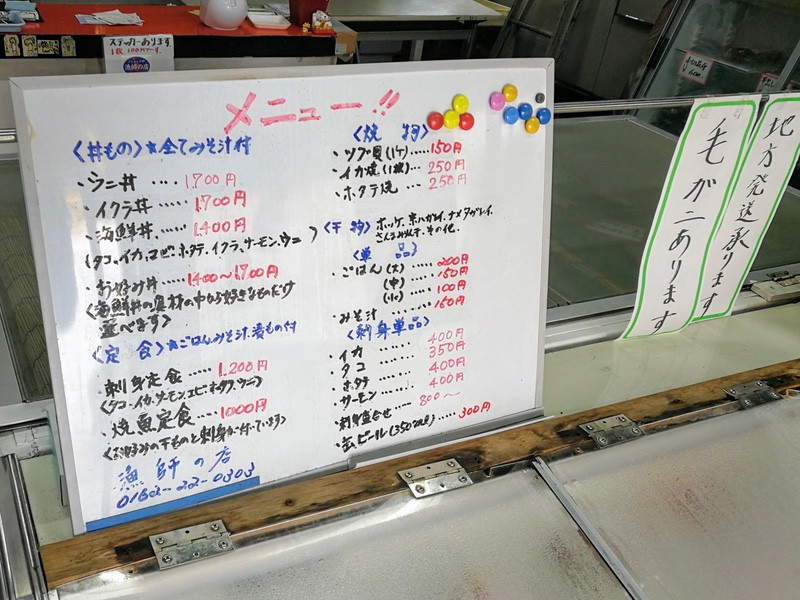 ステッカーあります。
1枚 100円です。
漁師の店
メニュー!!
〈丼もの〉☆全てみそ汁付
・ウニ丼 ‥‥ 1,700円
・イクラ丼 ‥‥ 1,700円
・海鮮丼 ‥‥ 1,400円
(タコ、イカ、エビ、ホタテ、イクラ、サーモン、ウニ)
・お好み丼 ‥‥ 1,400〜1,700円
〈海鮮丼の具材の中から好きなものだけ
選べます〉
〈定食〉☆ごはん、みそ汁、漬もの付
・刺身定食 ‥‥ 1,200円
(タコ、イカ、サーモン、エビ、ホタテ、ウニ)
・焼魚定食 ‥‥ 1000円
〈お好みの干ものと刺身が付いています〉
漁師の店
0162-22-0303
〈焼物〉
・ツブ貝(1ケ) ‥‥ 150円
・イカ焼(1枚) ‥‥ 250円
・ホタテ焼 ‥‥ 250円
〈干物〉ホッケ、宗八ガレイ、ナメタガレイ、
さんまみりん干、その他、
〈単品〉
・ごはん(大) ‥‥ 200円
(中) ‥‥ 150円
(小) ‥‥ 100円
・みそ汁 ‥‥ 150円
〈刺身単品〉
・イカ ‥‥ 400円
・タコ ‥‥ 350円
・ホタテ ‥‥ 400円
・サーモン ‥‥ 400円
・刺身盛合せ ‥‥ 800〜
・缶ビール(350ml) ‥‥ 300円
毛がにあります
地方発送承ります